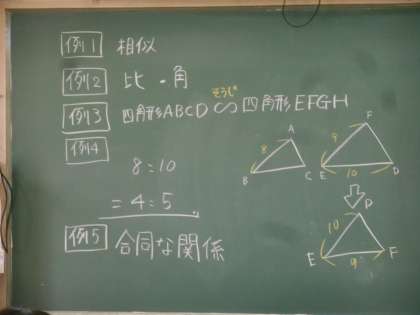 例1 相似
例2 比・角
そうじ
例3 四角形ABCD∽四角形EFGH
例4
8:10
=4:5
例5 合同な関係
A
8
B
C
F
9
E
10
D
D
10
E
9
F